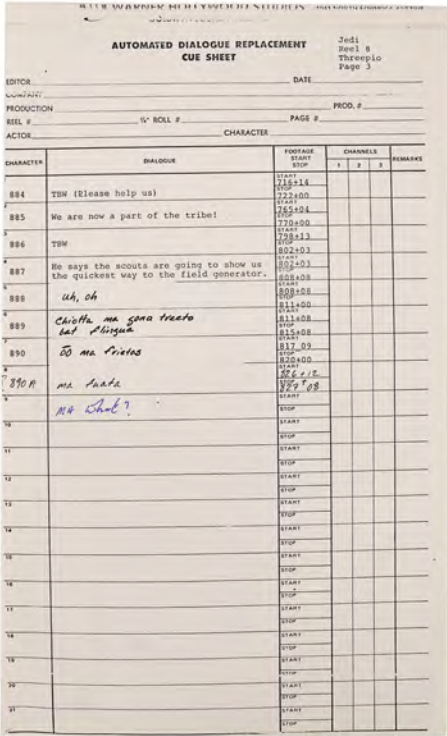 WARNER HOLLYWOOD STUDIOS
AUTOMATED DIALOGUE REPLACEMENT
CUE SHEET
Jedi
Reel 8
Threepio
Page 3
EDITOR DATE
COMPANY
PRODUCTION PROD. #
REEL # ¼" ROLL # PAGE #
ACTOR CHARACTER
CHARACTER DIALOGUE FOOTAGE START STOP CHANNELS 1 2 3 REMARKS
884 TBW (Please help us) START 716+14 STOP 722+00
2 885 We are now a part of the tribe! START 765+04 STOP 770+00
3 886 TBW START 798+13 STOP 802+03
4 887 He says the scouts are going to show us START 802+03
the quickest way to the field generator. STOP 808+08
5 888 uh, oh START 808+08 STOP 811+00
6 889 Chiotta ma gona treeto START 811+08
bat STOP 815+08
7 890 OO ma frietos START 817_09 STOP 820+00
8 890 A ma fuata START 826+12 STOP 827+08
9 MA What? START STOP
10 START STOP
11 START STOP
12 START STOP
13 START STOP
14 START STOP
15 START STOP
16 START STOP
17 START STOP
18 START STOP
19 START STOP
20 START STOP
21 START STOP